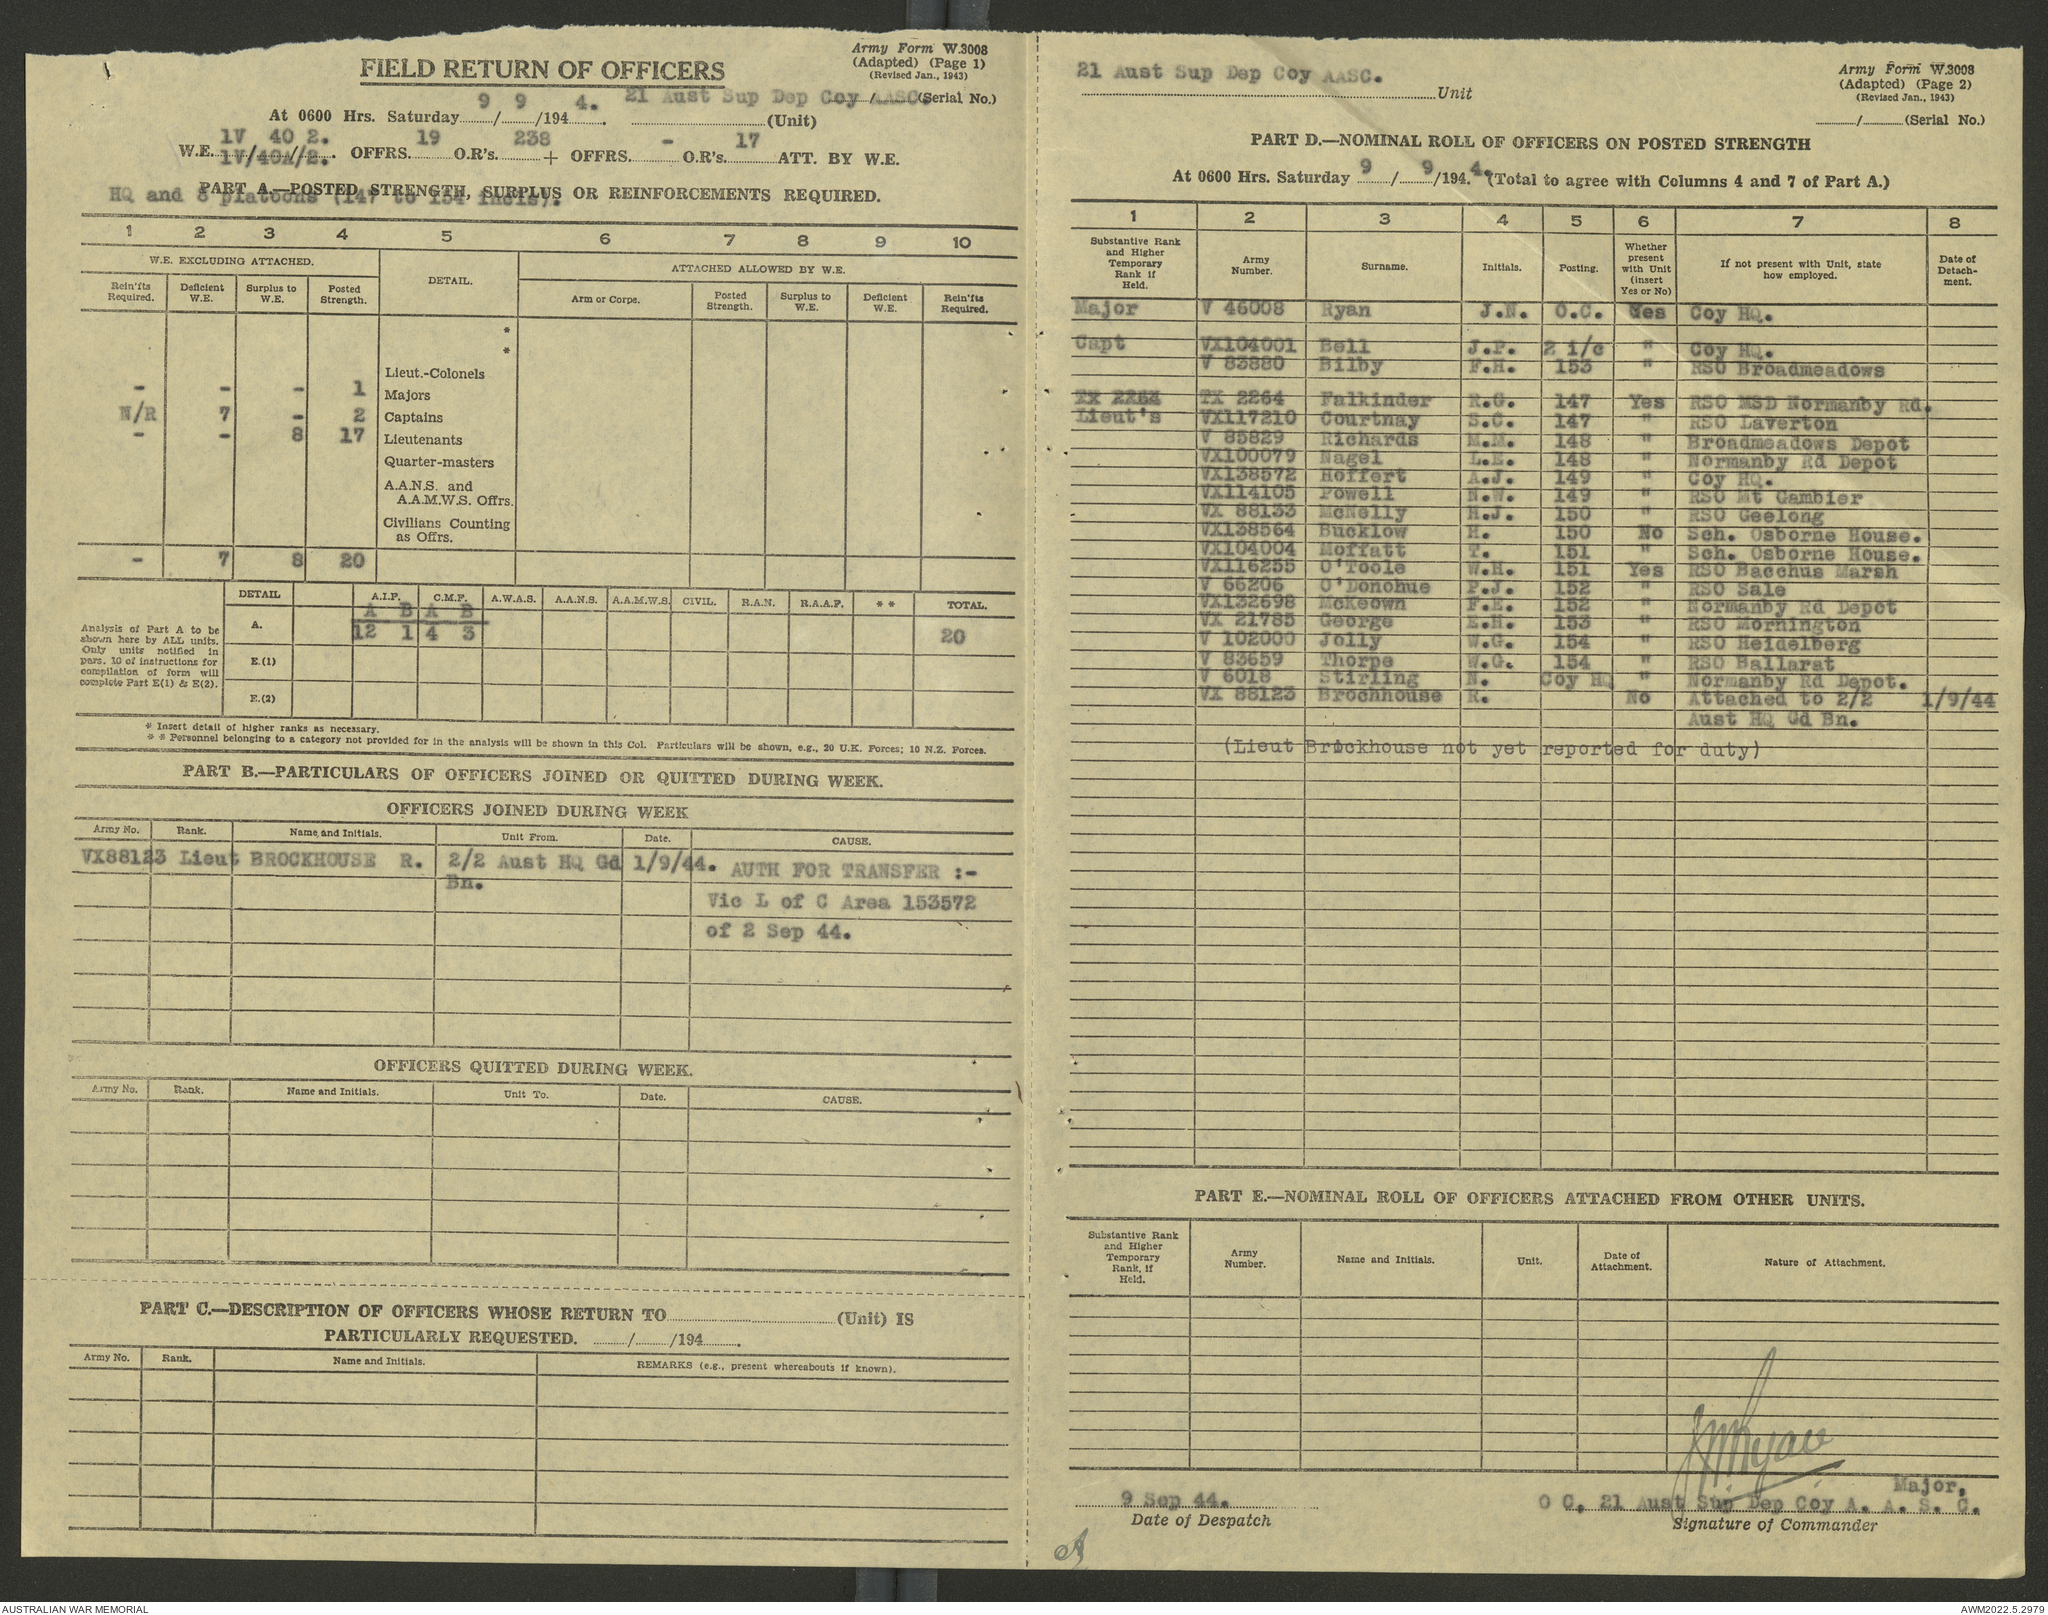 Army Form W.3008
(Adapted) (Page 1)
(Revised Jan., 1943)
FIELD RETURN OF OFFICERS
21 Aust Sup Dep Coy AASC. /......(Serial No.)
At 0600 Hrs. Saturday 9 / 9 /194 4. (Unit)
1V 40 2. 19 238 - 17
W.E. 1V/40A/2. OFFRS. O.R's. + OFFRS. O.R's. ATT. BY W.E.
PART A.—POSTED STRENGTH, SURPLUS OR REINFORCEMENTS REQUIRED.
HQ and 8 platoons (147 to 154 incls).
1 2 3 4 5 6 7 8 9 10
W.E. EXCLUDING ATTACHED. DETAIL. ATTACHED ALLOWED BY W.E.
Rein'fts Required. Deficient W.E. Surplus to W.E. Posted Strength. Arm or Corps. Posted Strength. Surplus to W.E. Deficient W.E. Rein'fts Required.
*
*
Lieut.-Colonels
- - - 1 Majors
N/R 7 - 2 Captains
- - 8 17 Lieutenants
Quarter-masters
A.A.N.S. and
A.A.M.W.S. Offrs.
Civilians Counting
as Offrs.
- 7 8 20
DETAIL A.I.F. C.M.F. A.W.A.S. A.A.N.S. A.A.M.W.S. CIVIL. R.A.N. R.A.A.F. * * TOTAL.
A B A B
A. 12 1 4 3 20
E.(1)
E.(2)
Analysis of Part A to be
shown here by ALL units.
Only units notified in
para. 10 of instructions for
compilation of form will
complete Part E(1) & E(2).
* Insert detail of higher ranks as necessary.
* * Personnel belonging to a category not provided for in the analysis will be shown in this Col. Particulars will be shown, e.g., 20 U.K. Forces; 10 N.Z. Forces.
PART B.—PARTICULARS OF OFFICERS JOINED OR QUITTED DURING WEEK.
OFFICERS JOINED DURING WEEK
Army No. Rank. Name and Initials. Unit From. Date. CAUSE.
VX88123 Lieut BROCKHOUSE R. 2/2 Aust HQ Gd 1/9/44. AUTH FOR TRANSFER :-
Bn.
Vic L of C Area 153572
of 2 Sep 44.
OFFICERS QUITTED DURING WEEK.
Army No. Rank. Name and Initials. Unit To. Date. CAUSE.
PART C.—DESCRIPTION OF OFFICERS WHOSE RETURN TO (Unit) IS
PARTICULARLY REQUESTED. / /194
Army No. Rank. Name and Initials. REMARKS (e.g., present whereabouts if known).
21 Aust Sup Dep Coy AASC.
Unit
Army Form W.3008
(Adapted) (Page 2)
(Revised Jan., 1943)
/ (Serial No.)
PART D.—NOMINAL ROLL OF OFFICERS ON POSTED STRENGTH
At 0600 Hrs. Saturday 9 / 9 /194 4. (Total to agree with Columns 4 and 7 of Part A.)
1 2 3 4 5 6 7 8
Substantive Rank and Higher Temporary Rank if Held. Army Number. Surname. Initials. Posting. Whether present with Unit (insert Yes or No) If not present with Unit, state how employed. Date of Detach-ment.
Major V 46008 Ryan J.N. O.C. Yes Coy HQ.
Capt VX104001 Bell J.P. 2 i/c " Coy HQ.
V 83880 Bilby F.H. 153 " RSO Broadmeadows
TX 2264 TX 2264 Falkinder R.G. 147 Yes RSO MSD Normanby Rd.
Lieut's VX117210 Courtnay S.C. 147 " RSO Laverton
V 85829 Richards M.M. 148 " Broadmeadows Depot
VX100079 Nagel L.E. 148 " Normanby Rd Depot
VX138572 Hoffert A.J. 149 " Coy HQ.
VX114105 Powell N.W. 149 " RSO Mt Gambier
VX 88133 McNelly H.J. 150 " RSO Geelong
VX138564 Bucklow H. 150 No Sch. Osborne House.
VX104004 Moffatt T. 151 " Sch. Osborne House.
VX116255 O'Toole W.H. 151 Yes RSO Bacchus Marsh
V 66206 O'Donohue P.J. 152 " RSO Sale
VX132698 McKeown F.E. 152 " Normanby Rd Depot
VX 21785 George E.H. 153 " RSO Mornington
V 102000 Jolly W.G. 154 " RSO Heidelberg
V 83659 Thorpe W.G. 154 " RSO Ballarat
V 6018 Stirling N. Coy HQ " Normanby Rd Depot.
VX 88123 Brochhouse R. No Attached to 2/2 1/9/44
Aust HQ Gd Bn.
(Lieut Brockhouse not yet reported for duty)
PART E.—NOMINAL ROLL OF OFFICERS ATTACHED FROM OTHER UNITS.
Substantive Rank and Higher Temporary Rank, if Held. Army Number. Name and Initials. Unit. Date of Attachment. Nature of Attachment.
JNRyan
Major,
9 Sep 44. O C, 21 Aust Sup Dep Coy A. A. S. C.
Date of Despatch Signature of Commander
AUSTRALIAN WAR MEMORIAL AWM2022.5.2979